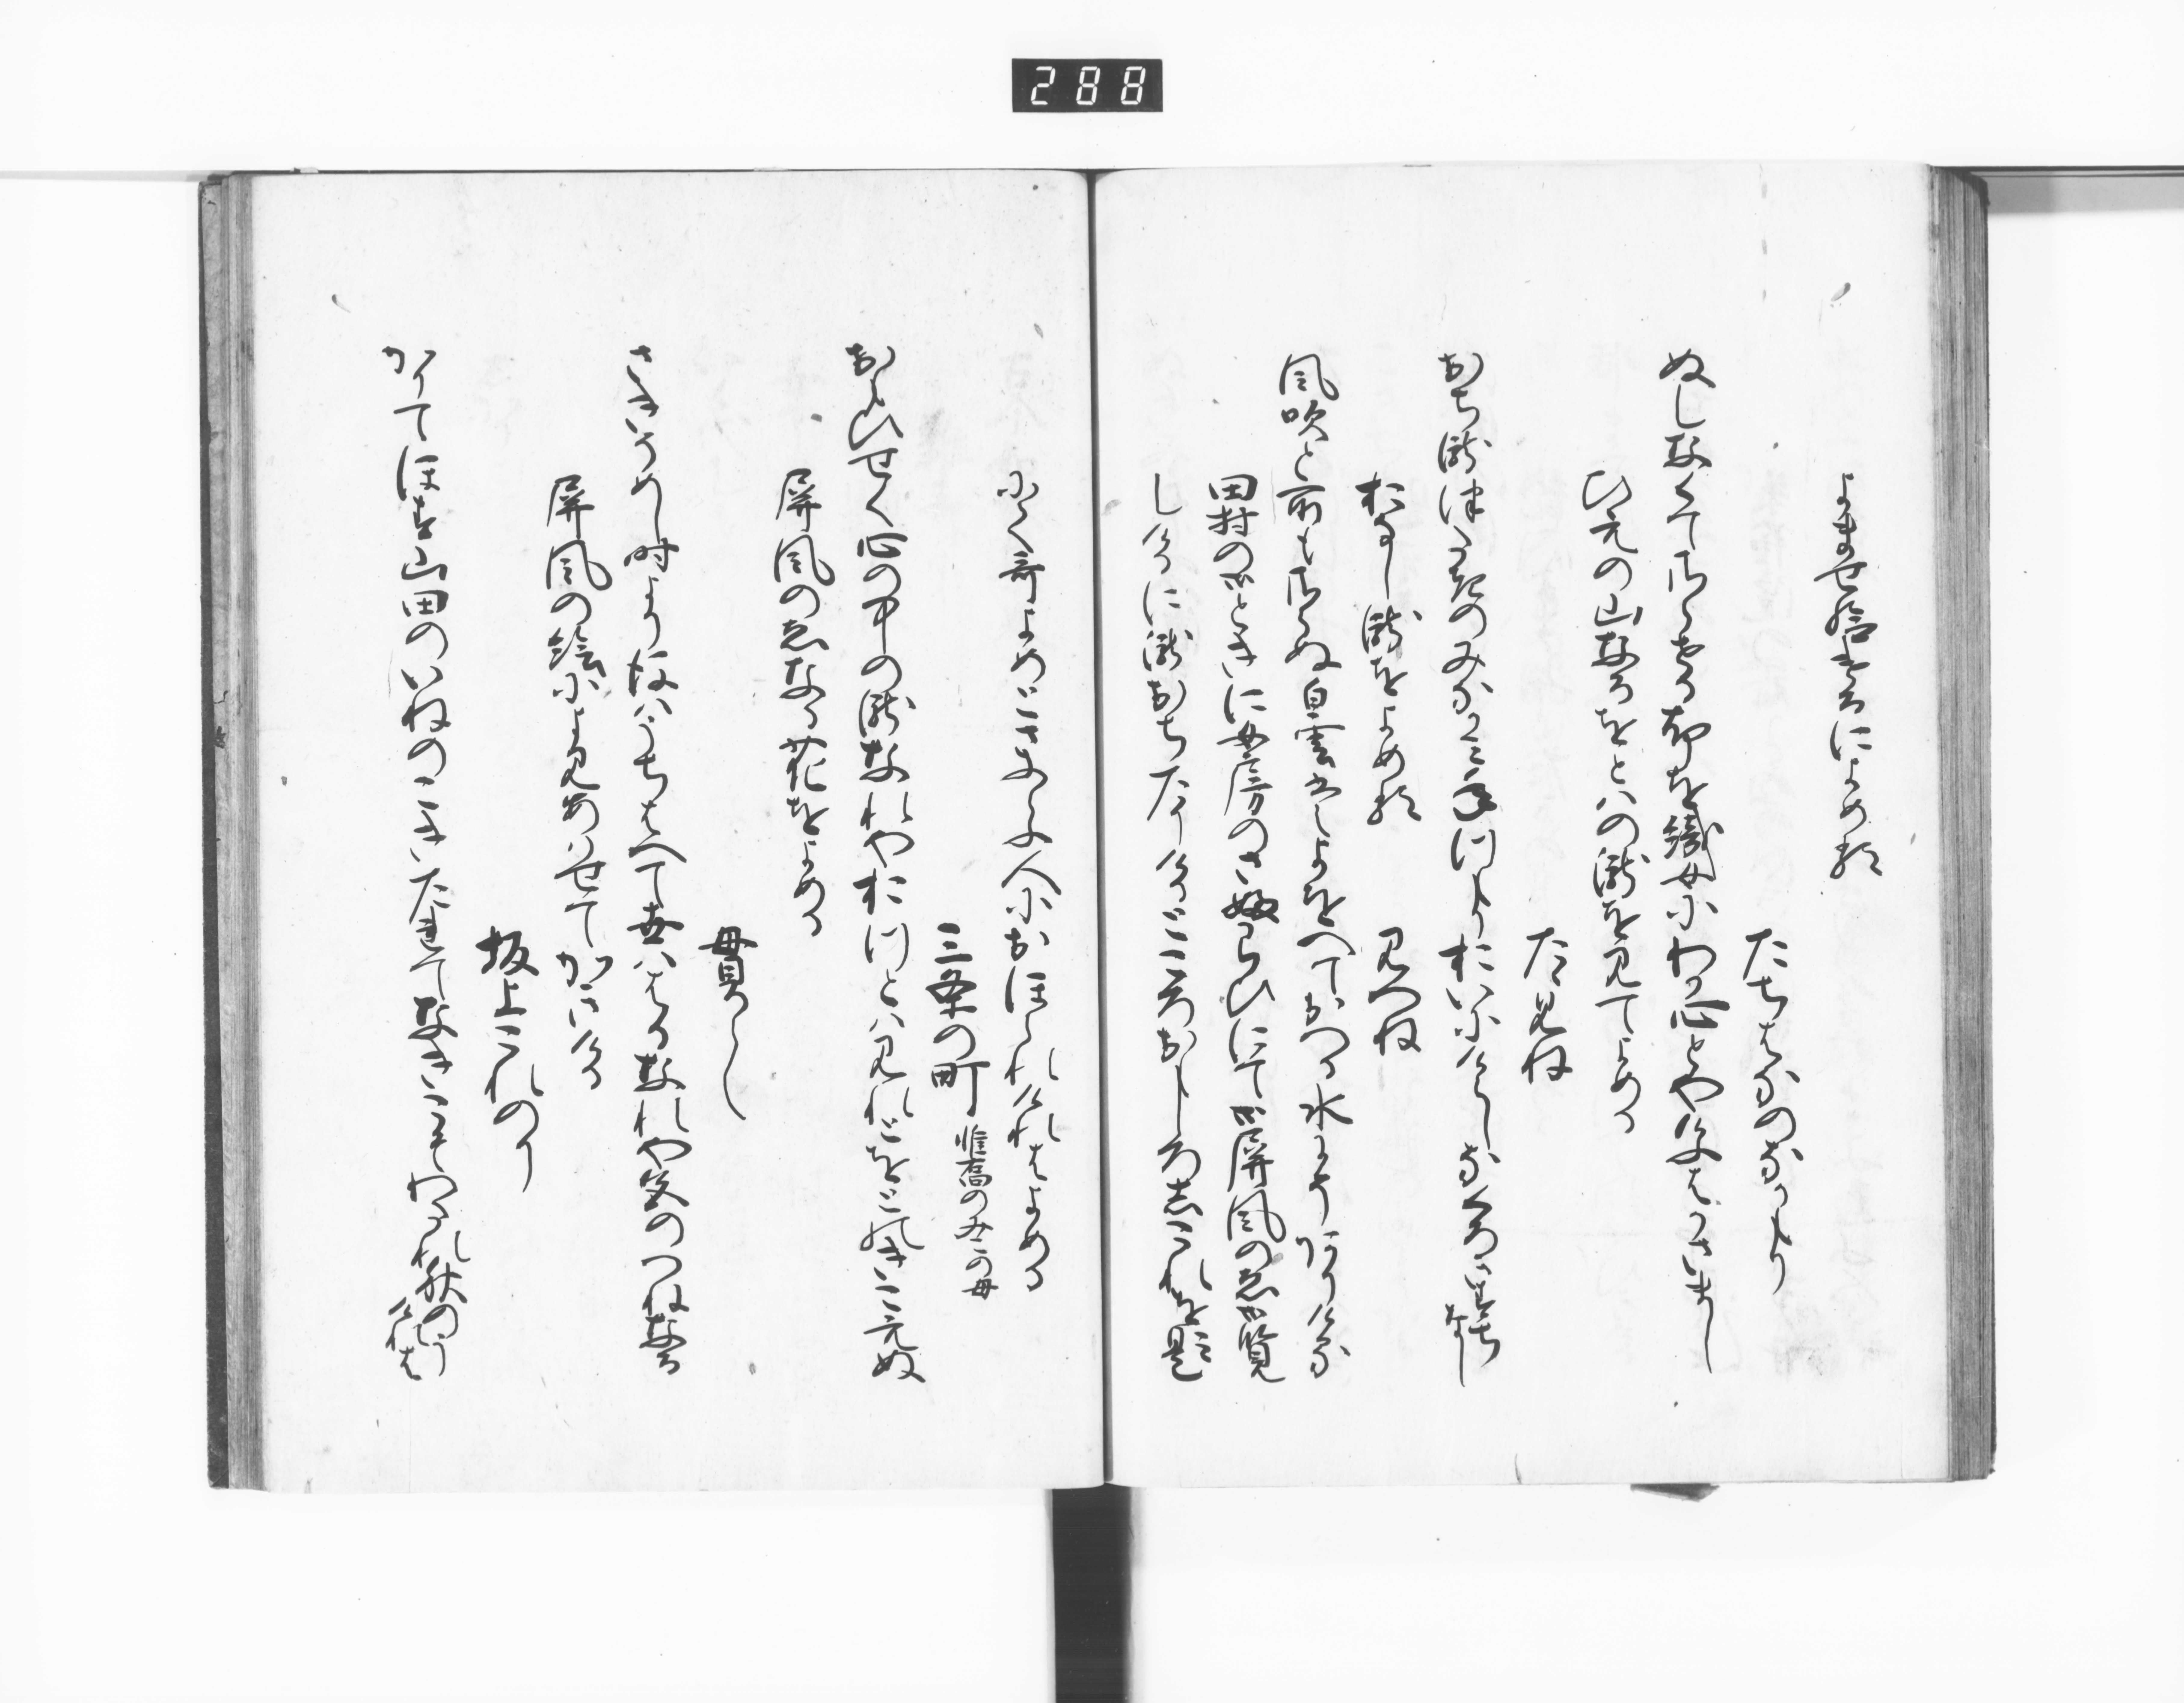 288
よませ給けるによめる
たちはなのなかもり
ぬしなくてさらせる布を織女にわか心とやけふはかさまし
ひえの山なるをとはの瀧を見てよめる
たゝみね
おち瀧津たきのみなかみ年つもりおいにけらしなくろきすちなし
おなし瀧をよめる
みつね
風吹と所もさらぬ白雲はよをへておつる水にそ有ける
田村の御ときに女房のさふらひにて御屏風のゑ御覧
しけるに瀧おちたりけるところおもしろしこれを題
にて哥よめとさふらふ人におほせられけれはよめる
三条の町 惟喬のみこの母
おもひせく心の中の瀧なれやおつとは見れとをとのきこえぬ
屏風のゑなる花をよめる
貫之
さきそめし時よりのちはうちはへて世は春なれや色のつねなる
屏風の絵によみあはせてかきける
坂上これのり
かりてほす山田のいねのこきたれてなきこそわたれ秋のうけれは